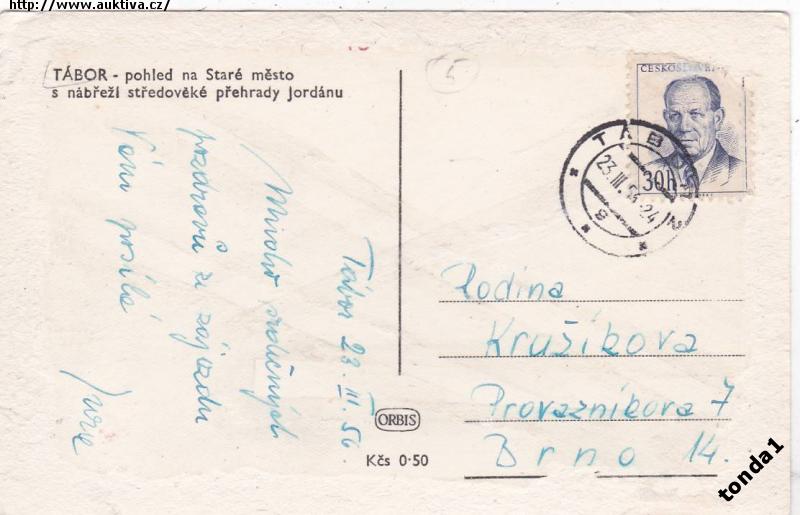 http://www.auktiva.cz/
TÁBOR - pohled na Staré město
s nábřeží středověké přehrady Jordánu
5
ČESKOSLOVEN
30h
TÁBOR 2
23.III.56-24
8
Tábor 23. III. 56
Mnoho srdečných
pozdravů ze zájezdu
Vám posílá
Rodina
Kružíkova
Provazníkova 7
Brno 14.
ORBIS
Kčs 0·50
tonda1